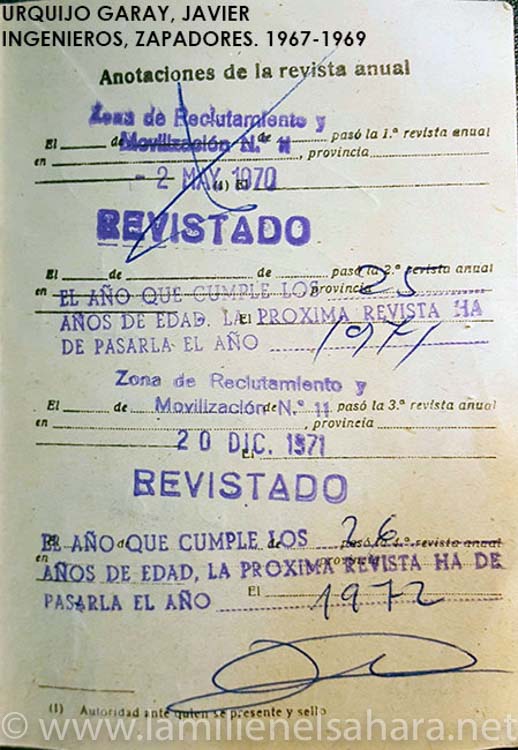 URQUIJO GARAY, JAVIER
INGENIEROS, ZAPADORES. 1967-1969
Anotaciones de la revista anual
Zona de Reclutamiento y
El de Movilización N.º 11 de pasó la 1.ª revista anual
en , provincia
- 2 MAY. 1970 (1) El
REVISTADO
El de de pasó la 2.ª revista anual
en EL AÑO QUE CUMPLE LOS provincia 25
AÑOS DE EDAD. LA PROXIMA REVISTA HA
El
DE PASARLA EL AÑO 1971
Zona de Reclutamiento y
El de Movilización de N.º 11 pasó la 3.ª revista anual
en , provincia
20 DIC. 1971
El
REVISTADO
EL AÑO QUE CUMPLE LOS 26 pasó la 4.ª revista anual
en provincia
AÑOS DE EDAD, LA PROXIMA REVISTA HA DE
El
PASARLA EL AÑO 1972
(1) Autoridad ante quien se presente y sello
© www.lamilienelsahara.net